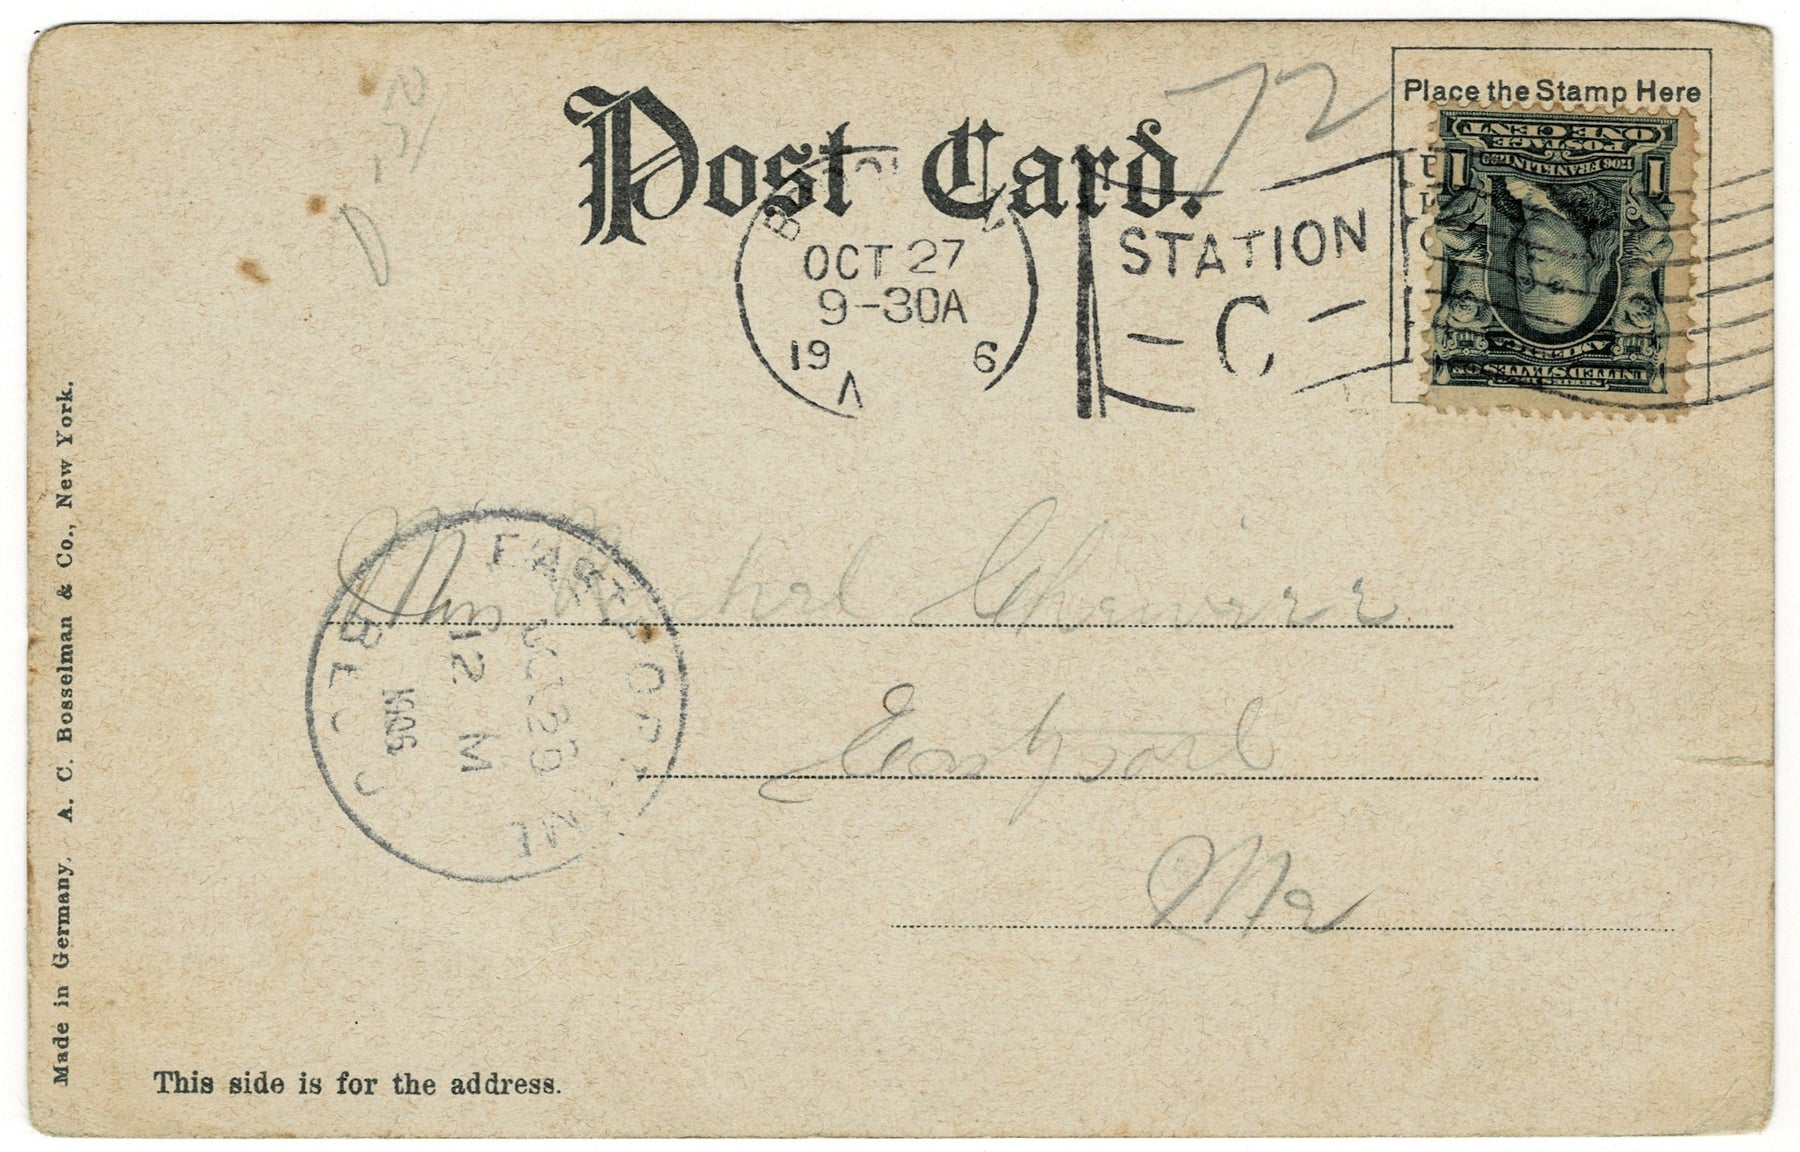 Post Card.
72
Place the Stamp Here
OCT 27
9-30A
19 6
STATION
C
ONE CENT
POSTAGE
1 FRANKLIN 1
UNITED STATES
Eastport
Me
EASTPORT ME
REC'D
12 M
1906
Made in Germany. A. C. Bosselman & Co., New York.
This side is for the address.